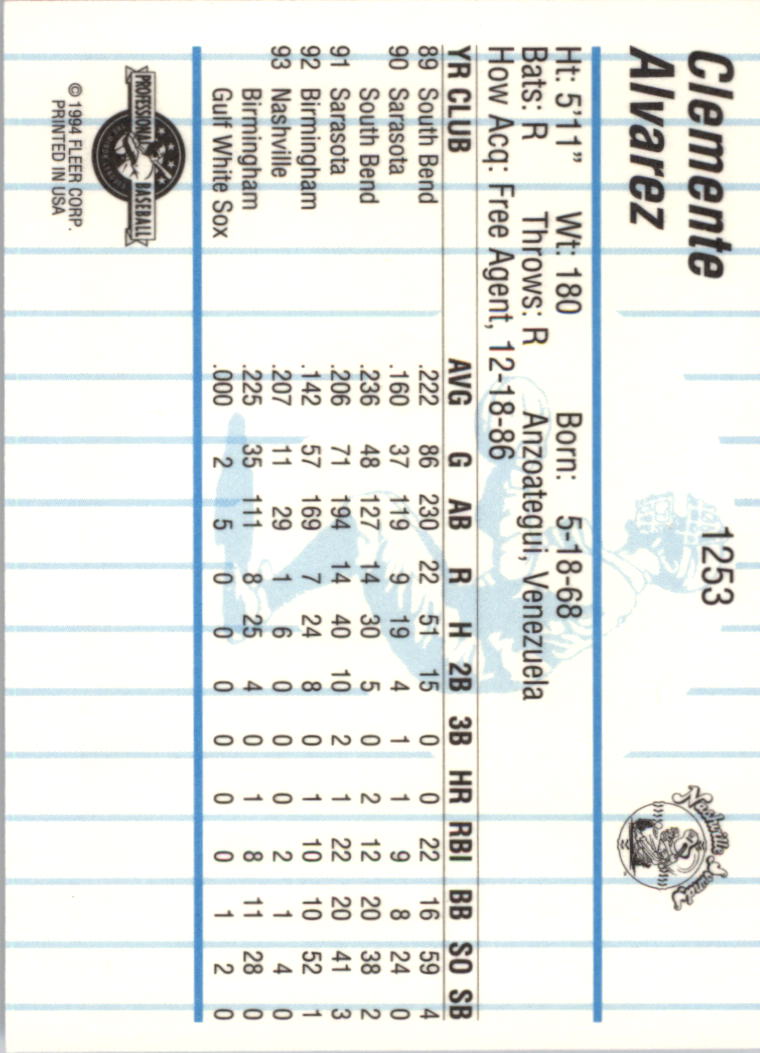 Clemente
Alvarez
1253
Nashville Sounds
Ht: 5'11" Wt: 180 Born: 5-18-68
Bats: R Throws: R Anzoategui, Venezuela
How Acq: Free Agent, 12-18-86
YR CLUB AVG G AB R H 2B 3B HR RBI BB SO SB
89 South Bend .222 86 230 22 51 15 0 0 22 16 59 4
90 Sarasota .160 37 119 9 19 4 1 1 9 8 24 0
South Bend .236 48 127 14 30 5 0 2 12 20 38 2
91 Sarasota .206 71 194 14 40 10 2 1 22 20 41 3
92 Birmingham .142 57 169 7 24 8 0 1 10 10 52 1
93 Nashville .207 11 29 1 6 0 0 0 2 1 4 0
Birmingham .225 35 111 8 25 4 0 1 8 11 28 0
Gulf White Sox .000 2 5 0 0 0 0 0 0 1 2 0
PROFESSIONAL BASEBALL
© 1994 FLEER CORP.
PRINTED IN USA